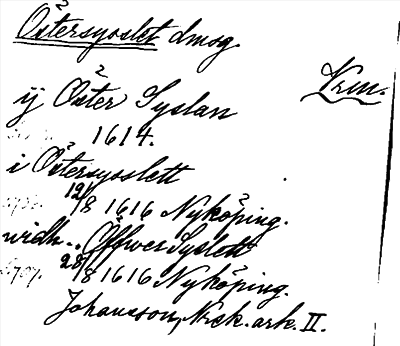 Östersysslet dmsg.
Krm.
ij Öster Syslan
1614.
i Östersysslett
12/8 1616 Nyköping.
widh .. Öffwer Syslett
28/8 1616 Nyköping.
Johansson, Nrsk. ark. II.